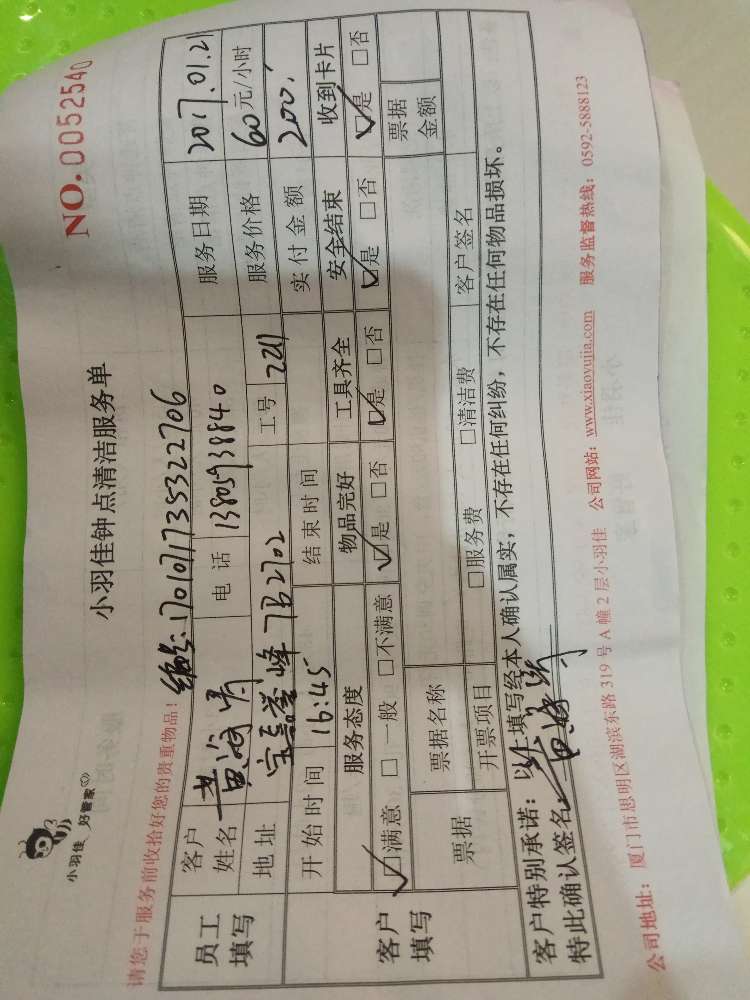 小羽佳 好管家
小羽佳钟点清洁服务单
NO.0052540
请您于服务前收拾好您的贵重物品！ 编号:170101735322706
员工填写 客户姓名 黄 电话 13805938840 服务日期 2017.01.21
地址 宝嘉誉峰7B2702 工号 2211 服务价格 60元/小时
开始时间 16:45 结束时间 实付金额 200
客户填写 服务态度 物品完好 工具齐全 安全结束 收到卡片
☑满意 □一般 □不满意 ☑是 □否 ☑是 □否 ☑是 □否 ☑是 □否
票据 票据名称 票据金额
开票项目 □服务费 □清洁费 客户签名
客户特别承诺：以上填写经本人确认属实，不存在任何纠纷，不存在任何物品损坏。
特此确认签名 黄
公司地址：厦门市思明区湖滨东路319号A幢2层小羽佳 公司网站：www.xiaoyujia.com 服务监督热线：0592-5888123